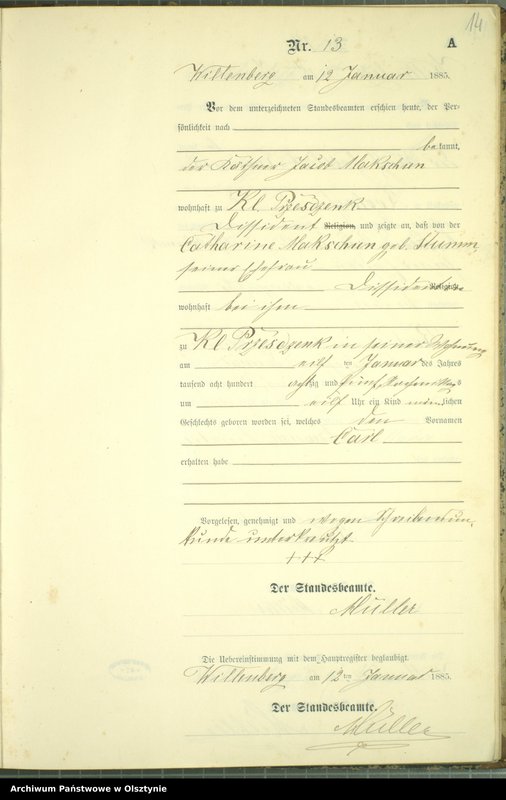 14
Nr. 13 A
Wittenberg am 12 Januar 1885.
Vor dem unterzeichneten Standesbeamten erschien heute, der Per-
sönlichkeit nach
bekannt,
der Käthner Jacob Makschun
wohnhaft zu Kl. Przesdzenk
Dissident Religion, und zeigte an, daß von der
Catharine Makschun geb. Stumm,
seiner Ehefrau
Dissident Religion,
wohnhaft bei ihm
zu Kl Przesdzenk in seiner Wohnung
am elf ten Januar des Jahres
tausend acht hundert achtzig und fünf, Nachmittags
um elf Uhr ein Kind männlichen
Geschlechts geboren worden sei, welches den Vornamen
Carl
erhalten habe
Vorgelesen, genehmigt und wegen Schreibensun-
kunde unterkreuzt.
+++
Der Standesbeamte.
Müller
Die Uebereinstimmung mit dem Hauptregister beglaubigt.
Wittenberg am 12ten Januar 1885.
Der Standesbeamte.
Müller
Archiwum Państwowe w Olsztynie